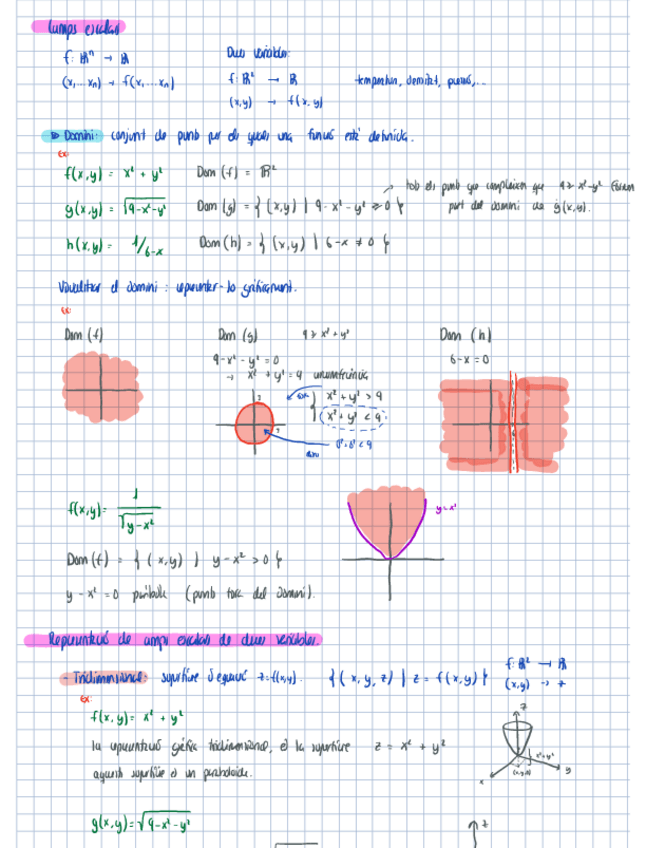 Camps escalars
f: ℝⁿ → ℝ
(x₁...xₙ) → f(x₁...xₙ)
Dues variables:
f: ℝ² → ℝ
(x,y) → f(x,y)
temperatura, densitat, pressió,...
Domini: conjunt de punts per els quals una funció està definida.
Ex:
f(x,y) = x² + y²
Dom (f) = ℝ²
g(x,y) = √9-x²-y²
Dom (g) = { (x,y) | 9-x²-y² ≥ 0 }
tots els punts que compleixen que
part del domini de g(x,y).
h(x,y) = 1/6-x
Dom (h) = { (x,y) | 6-x ≠ 0 }
Visualitzar el domini: representar-lo gràficament.
Ex:
Dom (f)
Dom (g) 9 ≥ x² + y²
9-x²-y² = 0
→ x² + y² = 9 circumferència
x² + y² > 9
x² + y² < 9
0²+0² < 9
3
3
Dom (h)
6-x = 0
f(x,y) = 1/√y-x²
Dom (f) = { (x,y) | y-x² > 0 }
y - x² = 0 paràbola (punts fora del domini).
y = x²
Representació de camps escalars de dues variables.
- Tridimensional: superfície d'equació z=f(x,y). { (x, y, z) | z = f(x,y) }
f: ℝ² → ℝ
(x,y) → z
Ex:
f(x,y) = x² + y²
la representació gràfica tridimensional, és la superfície z = x² + y²
aquesta superfície és un paraboloide.
z
x²+y²
(x,y,0)
x
y
g(x,y) = √9-x²-y²
z